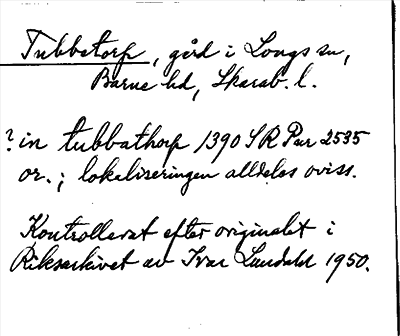 Tubbetorp, gård i Longs sn,
Barne hd, Skarab. l.
? in tubbathorp 1390 SRPur 2535
or.; lokaliseringen alldeles oviss.
Kontrollerat efter originalet i
Riksarkivet av Ivar Lundahl 1950.